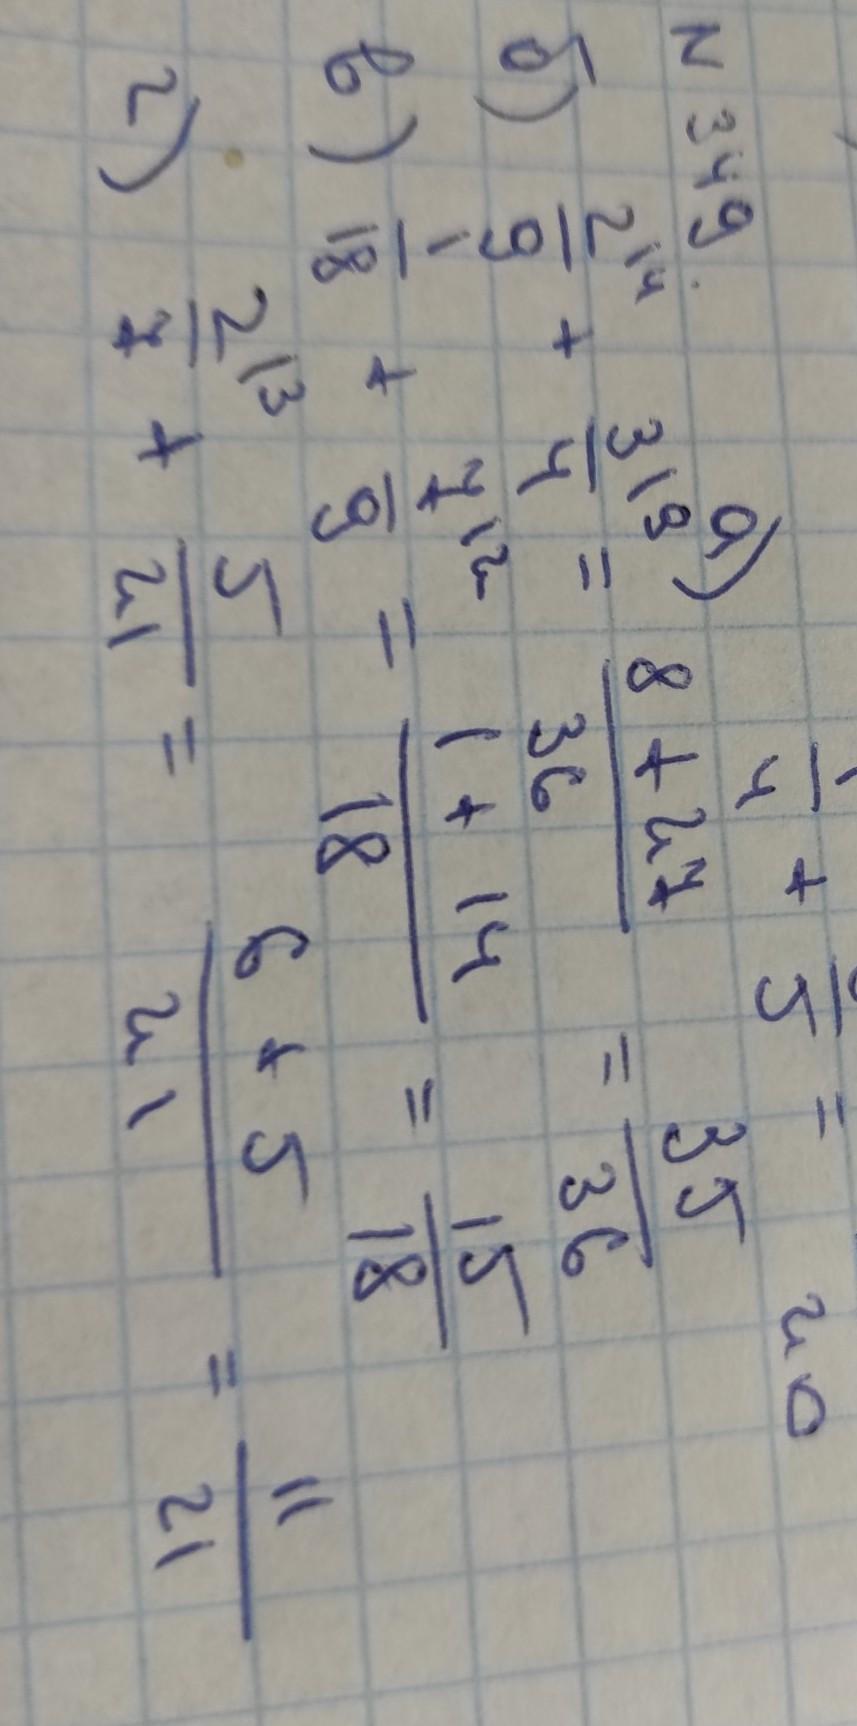 N 349. а) 1/4 + /5 = 20
б) 2|4/9 + 3|9/4 = 8+27/36 = 35/36
в) 1/18 + 7|2/9 = 1+14/18 = 15/18
г) 2|3/7 + 5/21 = 6+5/21 = 11/21